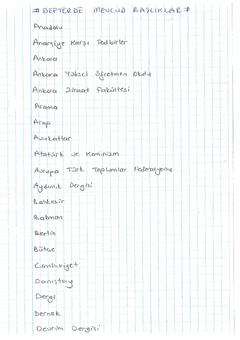 # DEFTERDE MEVCUD BAŞLIKLAR #
Anadolu
Anarşiye Karşı Tedbirler
Ankara
Ankara Yüksel Öğretmen Okulu
Ankara Ziraat Fakültesi
Arama
Arap
Avukatlar
Atatürk ve Kominizm
Avrupa Türk Toplumlar Federasyonu
Aydınlık Dergisi
Balıkesir
Batman
Berlin
Bütçe
Cumhuriyet
Danıştay
Dergi
Dernek
Devrim Dergisi